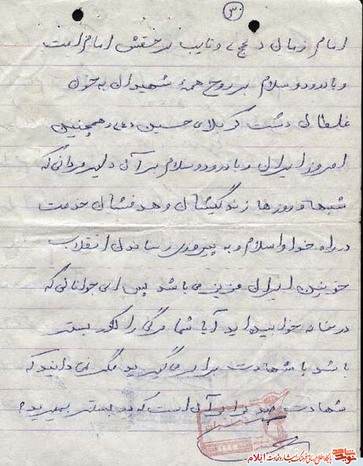 (۳۰)
امام زمان (عج) و نایب بر حقش امام است
و با درود و سلام بر روح همهٔ شهیدان به خون
غلطان دشت کربلای حسین (ع) و همچنین
امروز ایران و با درود و سلام بر آن دلیرمردانی که
شبها و روزها زندگیشان و هدفشان خدمت
در راه خدا و اسلام و به پیروزی رساندن انقلاب
خونین ایران عزیز می باشد پس ای جوانانی که
در خانه خوابیده اید آیا شما مرگی را که در بستر
باشد با شهادت برابر می گیرید مگر نمی دانید که
شهادت بهتر از آن است که در بستر بمیرید؟
ایلام